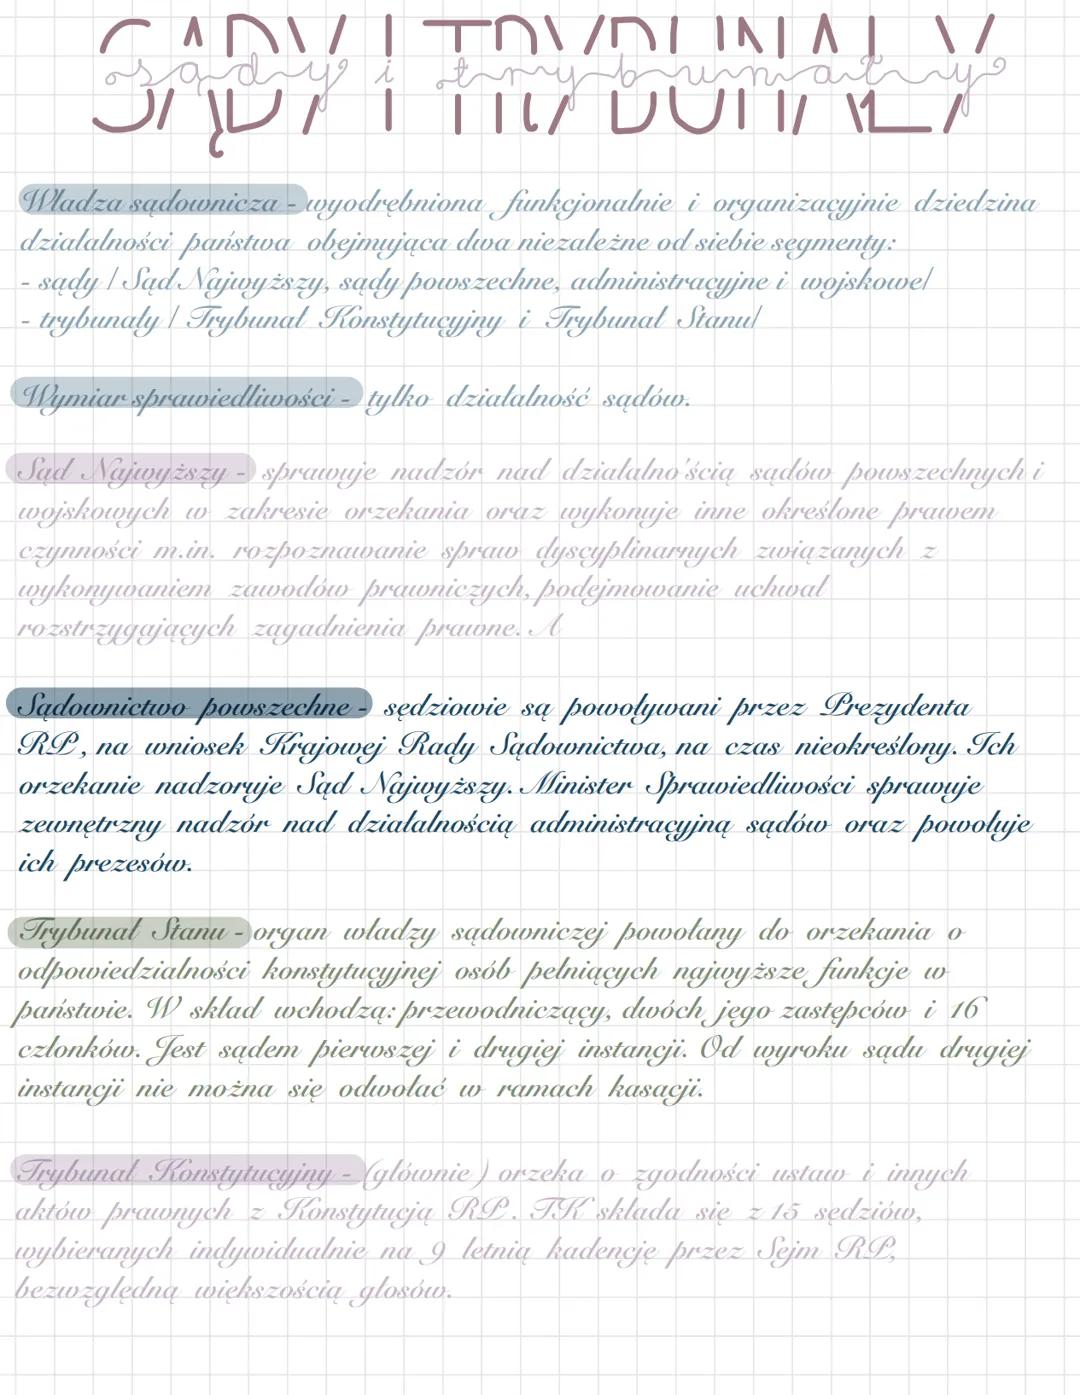 SĄDY I TRYBUNAŁY
sądy i trybunały
Władza sądownicza - wyodrębniona funkcjonalnie i organizacyjnie dziedzina
działalności państwa obejmująca dwa niezależne od siebie segmenty:
- sądy / Sąd Najwyższy, sądy powszechne, administracyjne i wojskowe/
- trybunały / Trybunał Konstytucyjny i Trybunał Stanu/
Wymiar sprawiedliwości - tylko działalność sądów.
Sąd Najwyższy - sprawuje nadzór nad działalno'ścią sądów powszechnych i
wojskowych w zakresie orzekania oraz wykonuje inne określone prawem
czynności m.in. rozpoznawanie spraw dyscyplinarnych związanych z
wykonywaniem zawodów prawniczych, podejmowanie uchwał
rozstrzygających zagadnienia prawne. A
Sądownictwo powszechne - sędziowie są powoływani przez Prezydenta
RP, na wniosek Krajowej Rady Sądownictwa, na czas nieokreślony. Ich
orzekanie nadzoruje Sąd Najwyższy. Minister Sprawiedliwości sprawuje
zewnętrzny nadzór nad działalnością administracyjną sądów oraz powołuje
ich prezesów.
Trybunał Stanu - organ władzy sądowniczej powołany do orzekania o
odpowiedzialności konstytucyjnej osób pełniących najwyższe funkcje w
państwie. W skład wchodzą: przewodniczący, dwóch jego zastępców i 16
członków. Jest sądem pierwszej i drugiej instancji. Od wyroku sądu drugiej
instancji nie można się odwołać w ramach kasacji.
Trybunał Konstytucyjny - (głównie) orzeka o zgodności ustaw i innych
aktów prawnych z Konstytucją RP. TK składa się z 15 sędziów,
wybieranych indywidualnie na 9 letnią kadencję przez Sejm RP,
bezwzględną większością głosów.